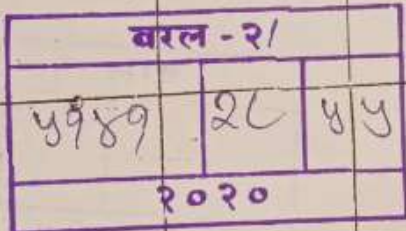 बरल - २/
५१४१ २८ ५५
२०२०